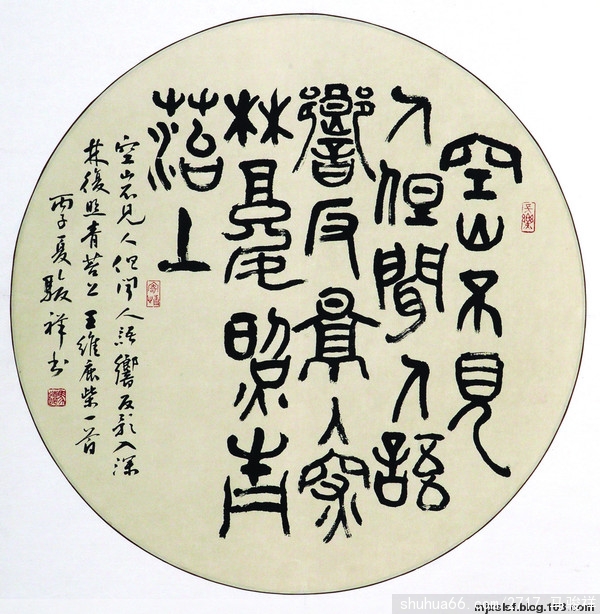 空山不見
人但聞人語
響反景入深
林復照青
苔上
空山不見人但聞人語響反影入深
林復照青苔上王維鹿柴一首
丙子夏駿祥书